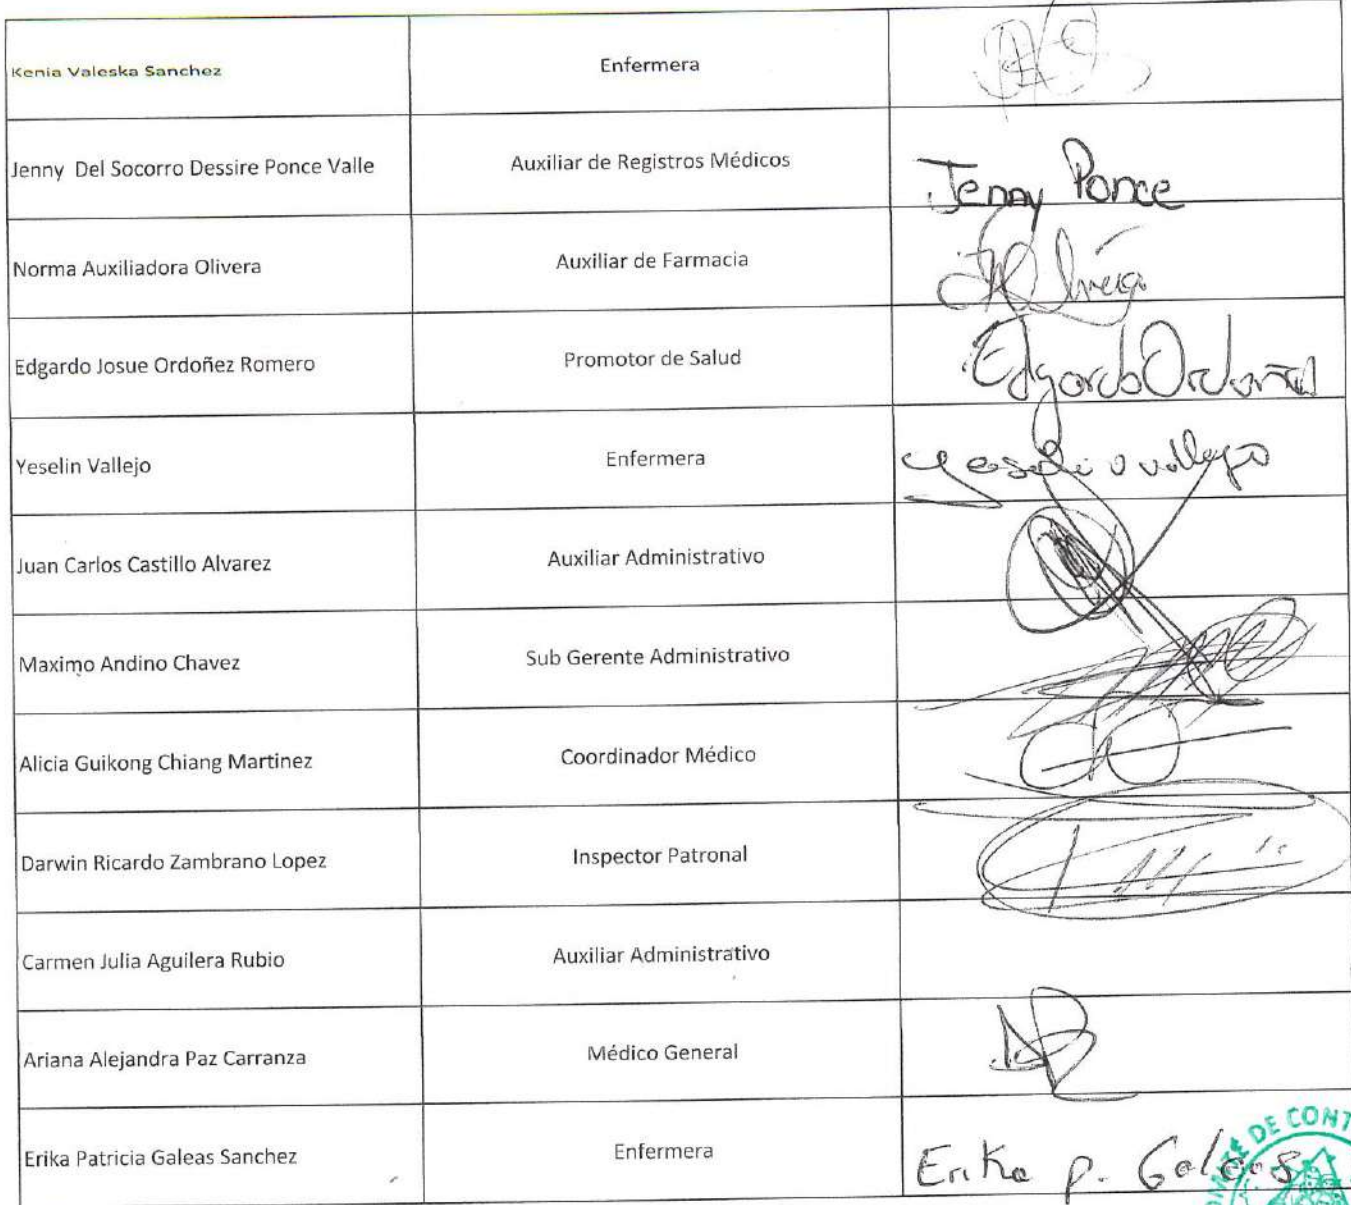 Kenia Valeska Sanchez Enfermera
Jenny Del Socorro Dessire Ponce Valle Auxiliar de Registros Médicos Jenny Ponce
Norma Auxiliadora Olivera Auxiliar de Farmacia
Edgardo Josue Ordoñez Romero Promotor de Salud Edgardo Ordoñez
Yeselin Vallejo Enfermera
Juan Carlos Castillo Alvarez Auxiliar Administrativo
Maximo Andino Chavez Sub Gerente Administrativo
Alicia Guikong Chiang Martinez Coordinador Médico
Darwin Ricardo Zambrano Lopez Inspector Patronal
Carmen Julia Aguilera Rubio Auxiliar Administrativo
Ariana Alejandra Paz Carranza Médico General
Erika Patricia Galeas Sanchez Enfermera Erika P. Galeas
DE